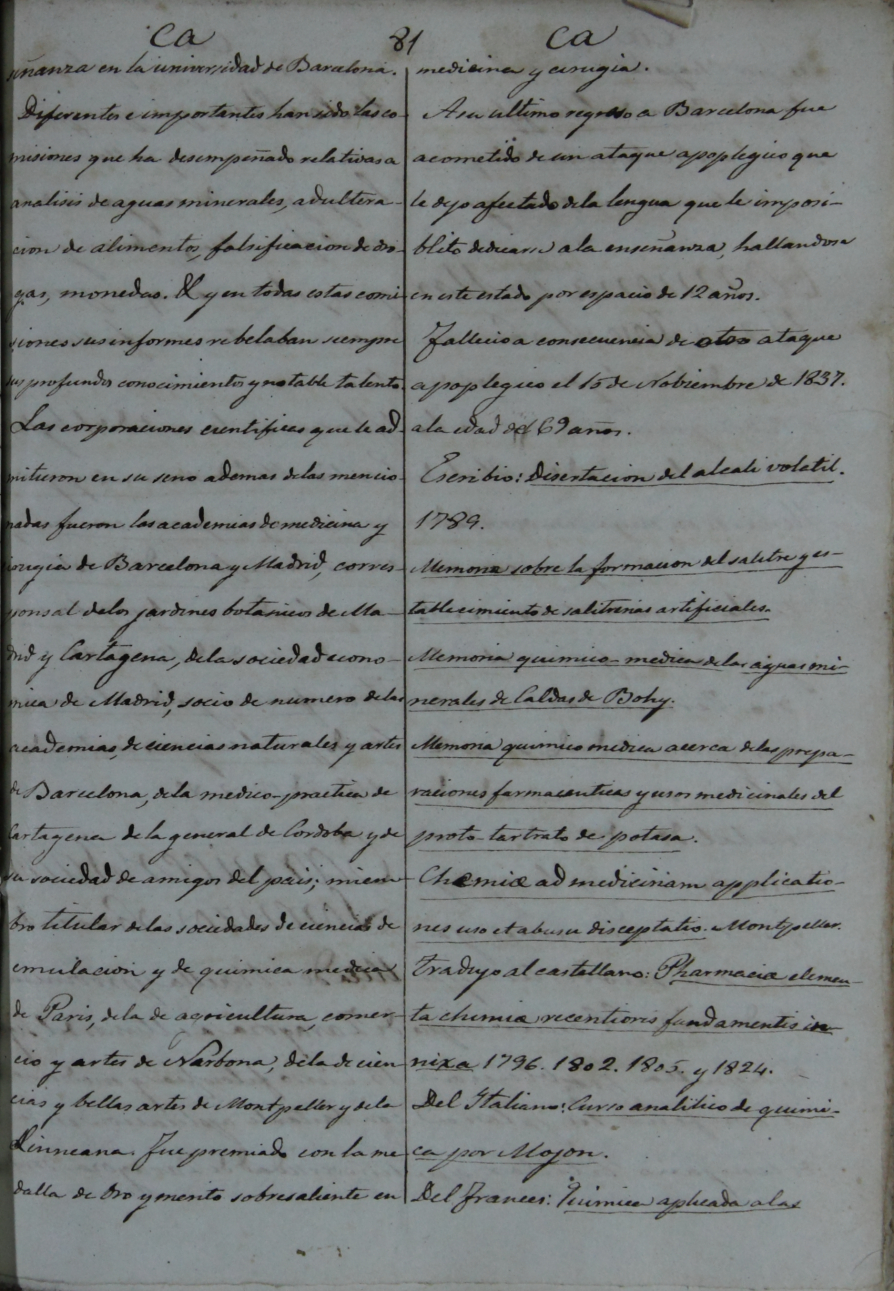 Ca
81
Ca
señanza en la universidad de Barcelona.
Diferentes e importantes han sido las co-
misiones que ha desempeñado relativas a
analisis de aguas minerales, adultera-
cion de alimentos, falsificacion de dro-
gas, monedas. & y en todas estas comi-
siones sus informes rebelaban siempre
sus profundos conocimientos y notable talento.
Las corporaciones cientificas que le ad-
mitieron en su seno ademas de las mencio-
nadas fueron las academias de medicina y
cirugia de Barcelona y Madrid, corres-
ponsal de los jardines botanicos de Ma-
drid y Cartagena, de la sociedad econo-
mica de Madrid, socio de numero de las
academias, de ciencias naturales y artes
de Barcelona, de la medico-practica de
Cartagena de la general de Cordoba y de
su sociedad de amigos del pais; miem-
bro titular de las sociedades de ciencias de
emulacion y de quimica medica
de Paris, de la de agricultura, comer-
cio y artes de Narbona, de la de cien-
cias y bellas artes de Montpeller y de la
Linneana. Fue premiado con la me-
dalla de Oro y merito sobresaliente en
medicina y cirugia.
A su ultimo regreso a Barcelona fue
acometido de un ataque apoplegico que
le dejo afectado de la lengua que le imposi-
blito dedicarse a la enseñanza, hallandose
en este estado por espacio de 12 años.
Fallecio a consecuencia de otro ataque
apoplegico el 15 de Nobiembre de 1837.
a la edad de 69 años.
Escribio: Disertacion del alcali volatil.
1789.
Memoria sobre la formacion del salitre y es-
tablecimiento de salitrerias artificiales.
Memoria quimico-medica de las aguas mi-
nerales de Caldas de Bohy.
Memoria quimico medica acerca de las prepa-
raciones farmaceuticas y usos medicinales del
proto-tartrato de potasa.
Chemiæ ad medicinam applicatio-
nes uso et abusu disceptatio. Montpeller.
Tradujo al castellano: Pharmaciæ elemen-
ta chimiæ recentioris fundamentis in-
nixa 1796. 1802. 1805. y 1824.
Del Italiano: Curso analitico de quimi-
ca por Mojon.
Del Frances: Quimica aplicada a las